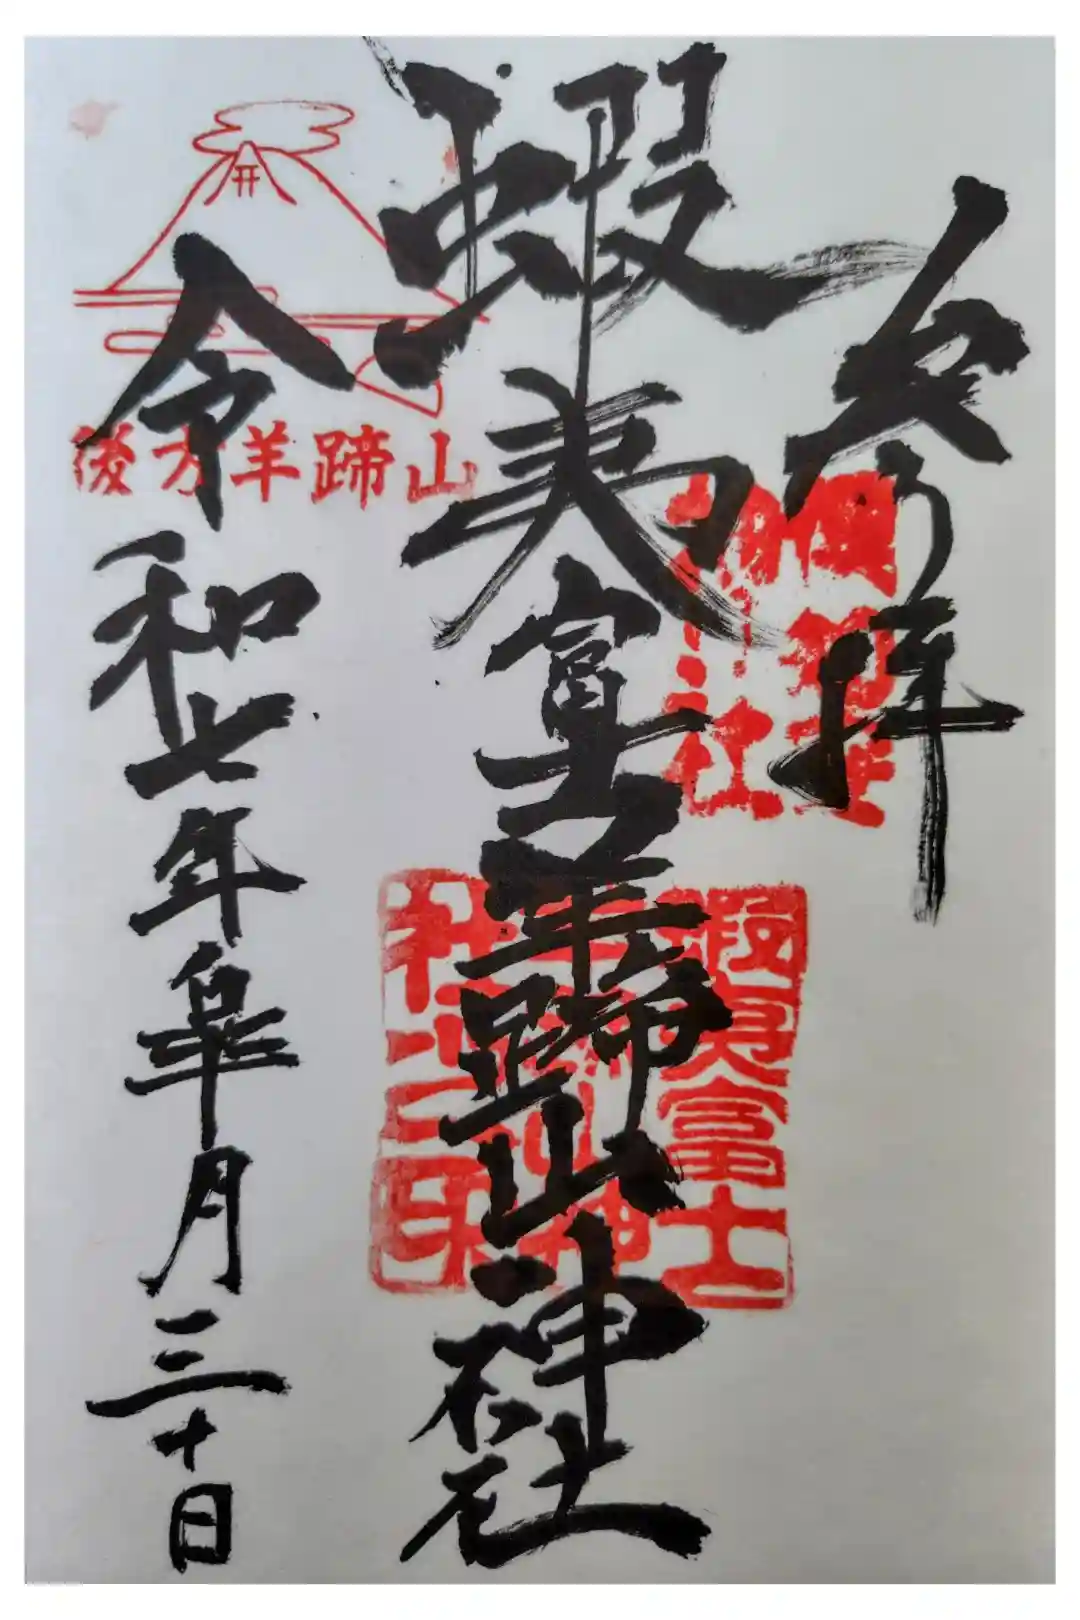 奉拝
蝦夷富士羊蹄山神社
令和七年皐月三十日
後方羊蹄山
蝦夷富士